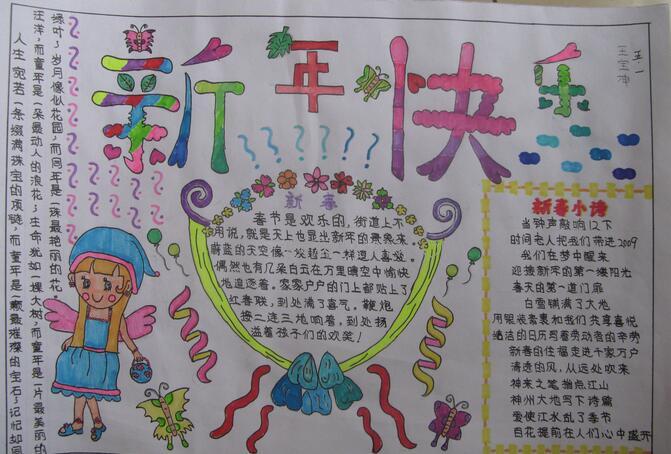 新年快乐
五.一
王宝坤
人生宛若一条缀满珠宝的项链，而童年是一颗最璀璨的宝石；记忆如同
汪洋，而童年是一朵最动人的浪花；生命犹如一棵大树，而童年是一片最美丽的
绿叶；岁月像似花园，而童年是一株最艳丽的花。
新春
春节是欢乐的，街道上不
用说，就是天上也显出新年的景象来。
蔚蓝的天空像一块蓝尘一样逗人喜欢。
偶然也有几朵白云在万里晴空中愉快
地追逐着。家家户户的门上都贴上了
红春联，到处满了喜气，鞭炮
接二连三地响着，到处扬
溢着孩子们的欢笑！
新春小诗
当钟声敲响12下
时间老人把我们带进2009
我们在梦中醒来
迎接新年的第一缕阳光
春天的第一道门扉
白雪铺满了大地
用银装素裹和我们共享喜悦
皓洁的日历写着劳动者的辛劳
新春的住福走进千家万户
清逸的风，从远处吹来
神来之笔抽点江山
神州大地写下诗篇
爱使江水乱了季节
百花提前在人们心中盛开